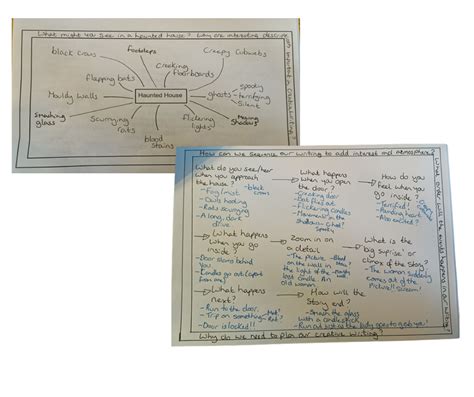 What might you see in a haunted house? Why are interesting
black crows
footsteps
Creepy Cobwebs
Creaking
floorboards
flapping bats
Haunted House
ghosts
spooky
terrifying
Silent
Mouldy Walls
Smashing
glass
Scurrying
rats
blood
stains
flickering
lights
Moving
Shadows
How can we sequence our writing to add interest and atmosphere?
What do you see/hear
when you approach
the house?
- black
- Fog/mist
- Owls
- Rats scurrying
- A long, dark
drive
What happens
when you open
the door?
- Creaking door
- Bats flies out
- Flickering candles
- Movement in the
shadows
How do you
feel when you
go inside?
- Terrified!
- Pounding heart
- Also excited?
What happens
when you go
inside?
- Door slams behind
you
- Candles go out (apart
from one)
Zoom in on
a detail
- The picture
on the wall in
the light of the
last candle. An
old woman
What is the
big surprise or
climax of the story?
- The woman suddenly
comes out of the
Picture!! Scream!
What happens
next?
- Run to the door
- Trip on something
- Rat?
- Door is locked!!
How will the
Story end?
- Smash the glass
with a candlestick
- Run out just as the lady
to grab you!
What order will the events happen in our writing?
Why do we need to plan our creative writing?